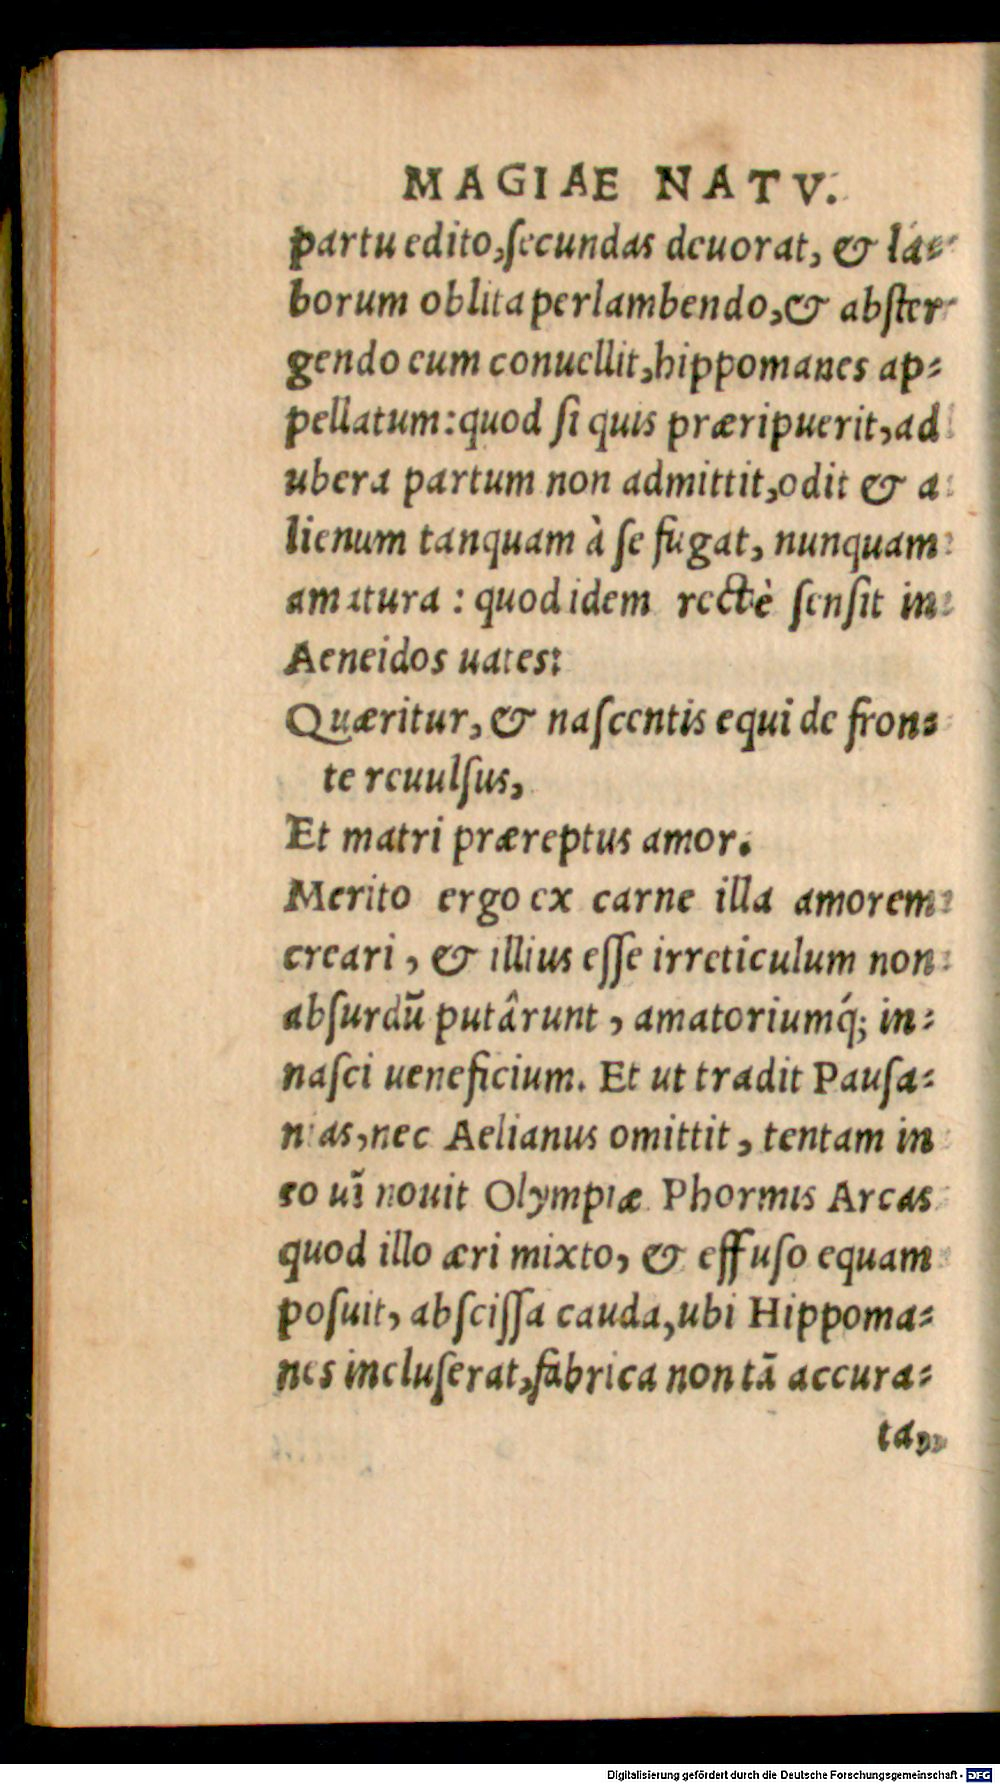 MAGIAE NATV.
partu edito,ſecundas deuorat, & la-
borum oblita perlambendo,& abſter
gendo eum conuellit,hippomanes ap-
pellatum:quod ſi quis præripuerit,ad
ubera partum non admittit,odit & a
lienum tanquam à ſe fugat, nunquam
amatura : quod idem rectè ſenſit in
Aeneidos uates:
Quæritur, & naſcentis equi de fron-
te reuulſus,
Et matri præreptus amor.
Merito ergo ex carne illa amorem
creari, & illius eſſe irreticulum non
abſurdū putârunt, amatoriumq́; in-
naſci ueneficium. Et ut tradit Pauſa-
nias,nec Aelianus omittit, tentam in
eo uī nouit Olympiæ Phormis Arcas
quod illo æri mixto, & effuſo equam
poſuit, abſciſſa cauda,ubi Hippoma-
nes incluſerat,fabrica non tā accura-
ta,
Digitalisierung gefördert durch die Deutsche Forschungsgemeinschaft - DFG